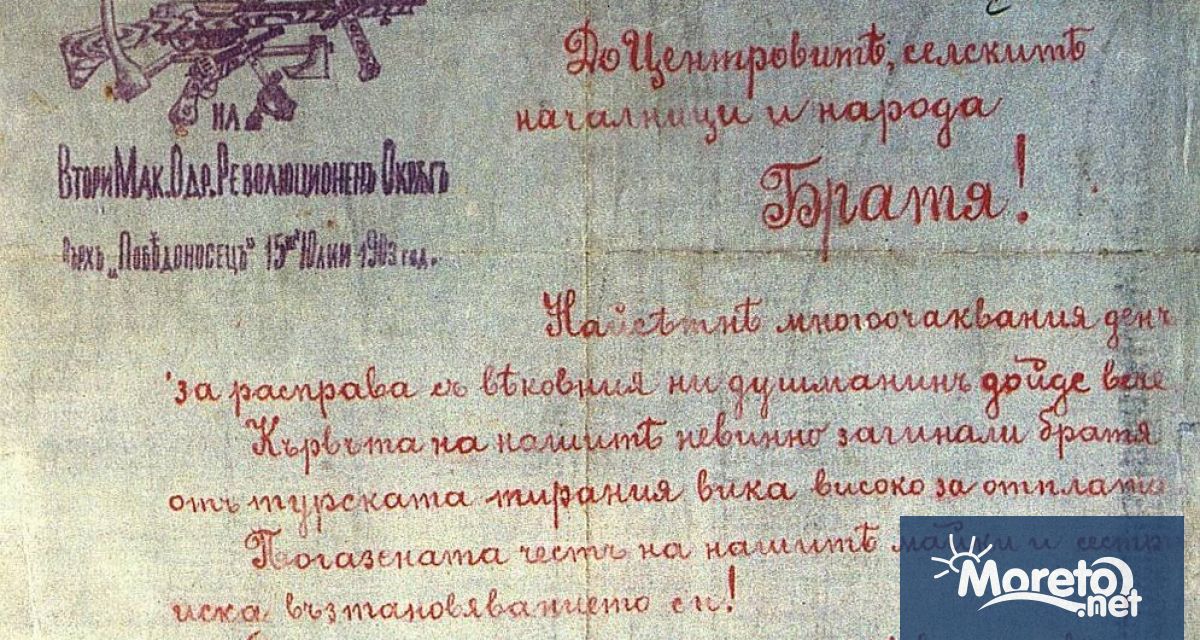 НА
Втори Мак. Одр. Революционенъ Окрѫгъ
Върхъ „Побѣдоносецъ“ 15ий Юлии 1903 год.
До Центровитѣ, селскитѣ
началници и народа
Братя!
Найсѣтнѣ многоочаквания день
за расправа съ вѣковния ни душманинъ дойде вече
Кървъта на нашитѣ невинно загинали братя
отъ турската тирания вика високо за отплата
Погазената честь на нашитѣ майки и сестри
иска възтановяванието си!
Moreto
.net